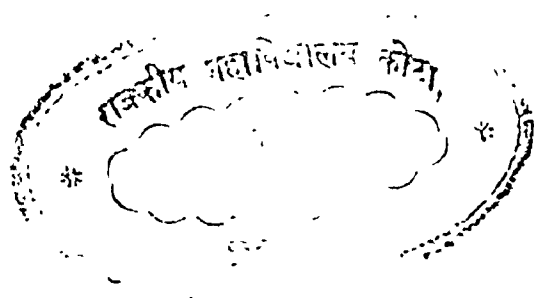 राजकीय महाविद्यालय कोटा,